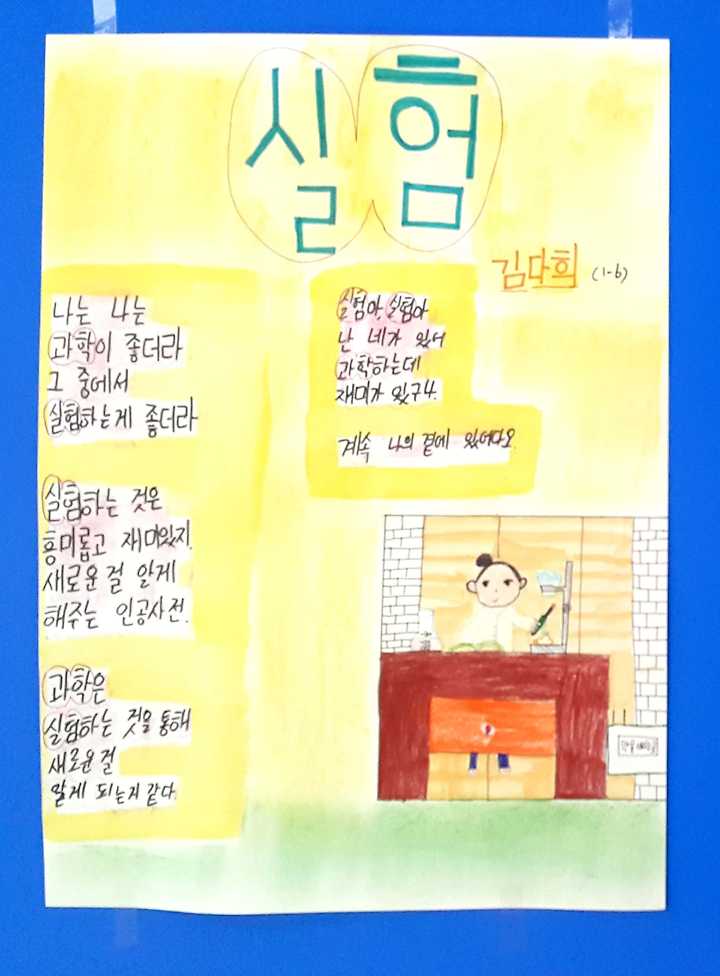 실험
김다희 (1-6)
나는 나는
과학이 좋더라
그 중에서
실험하는게 좋더라
실험하는 것은
흥미롭고 재미있지.
새로운 걸 알게
해주는 인공사전.
과학은
실험하는 것을 통해
새로운 걸
알게 되는거 같다.
실험아, 실험아
난 네가 있어
과학하는데
재미가 있구나.
계속 나의 곁에 있어다오.